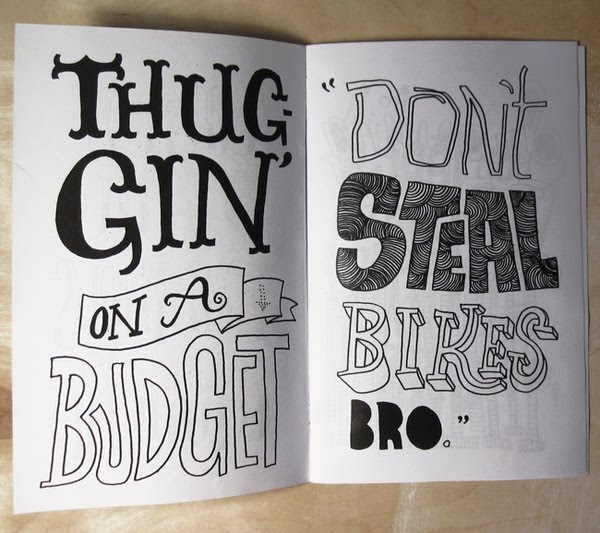 THUG-
GIN'
ON A
BUDGET
"DON't
STEAL
BIKES
BRO."